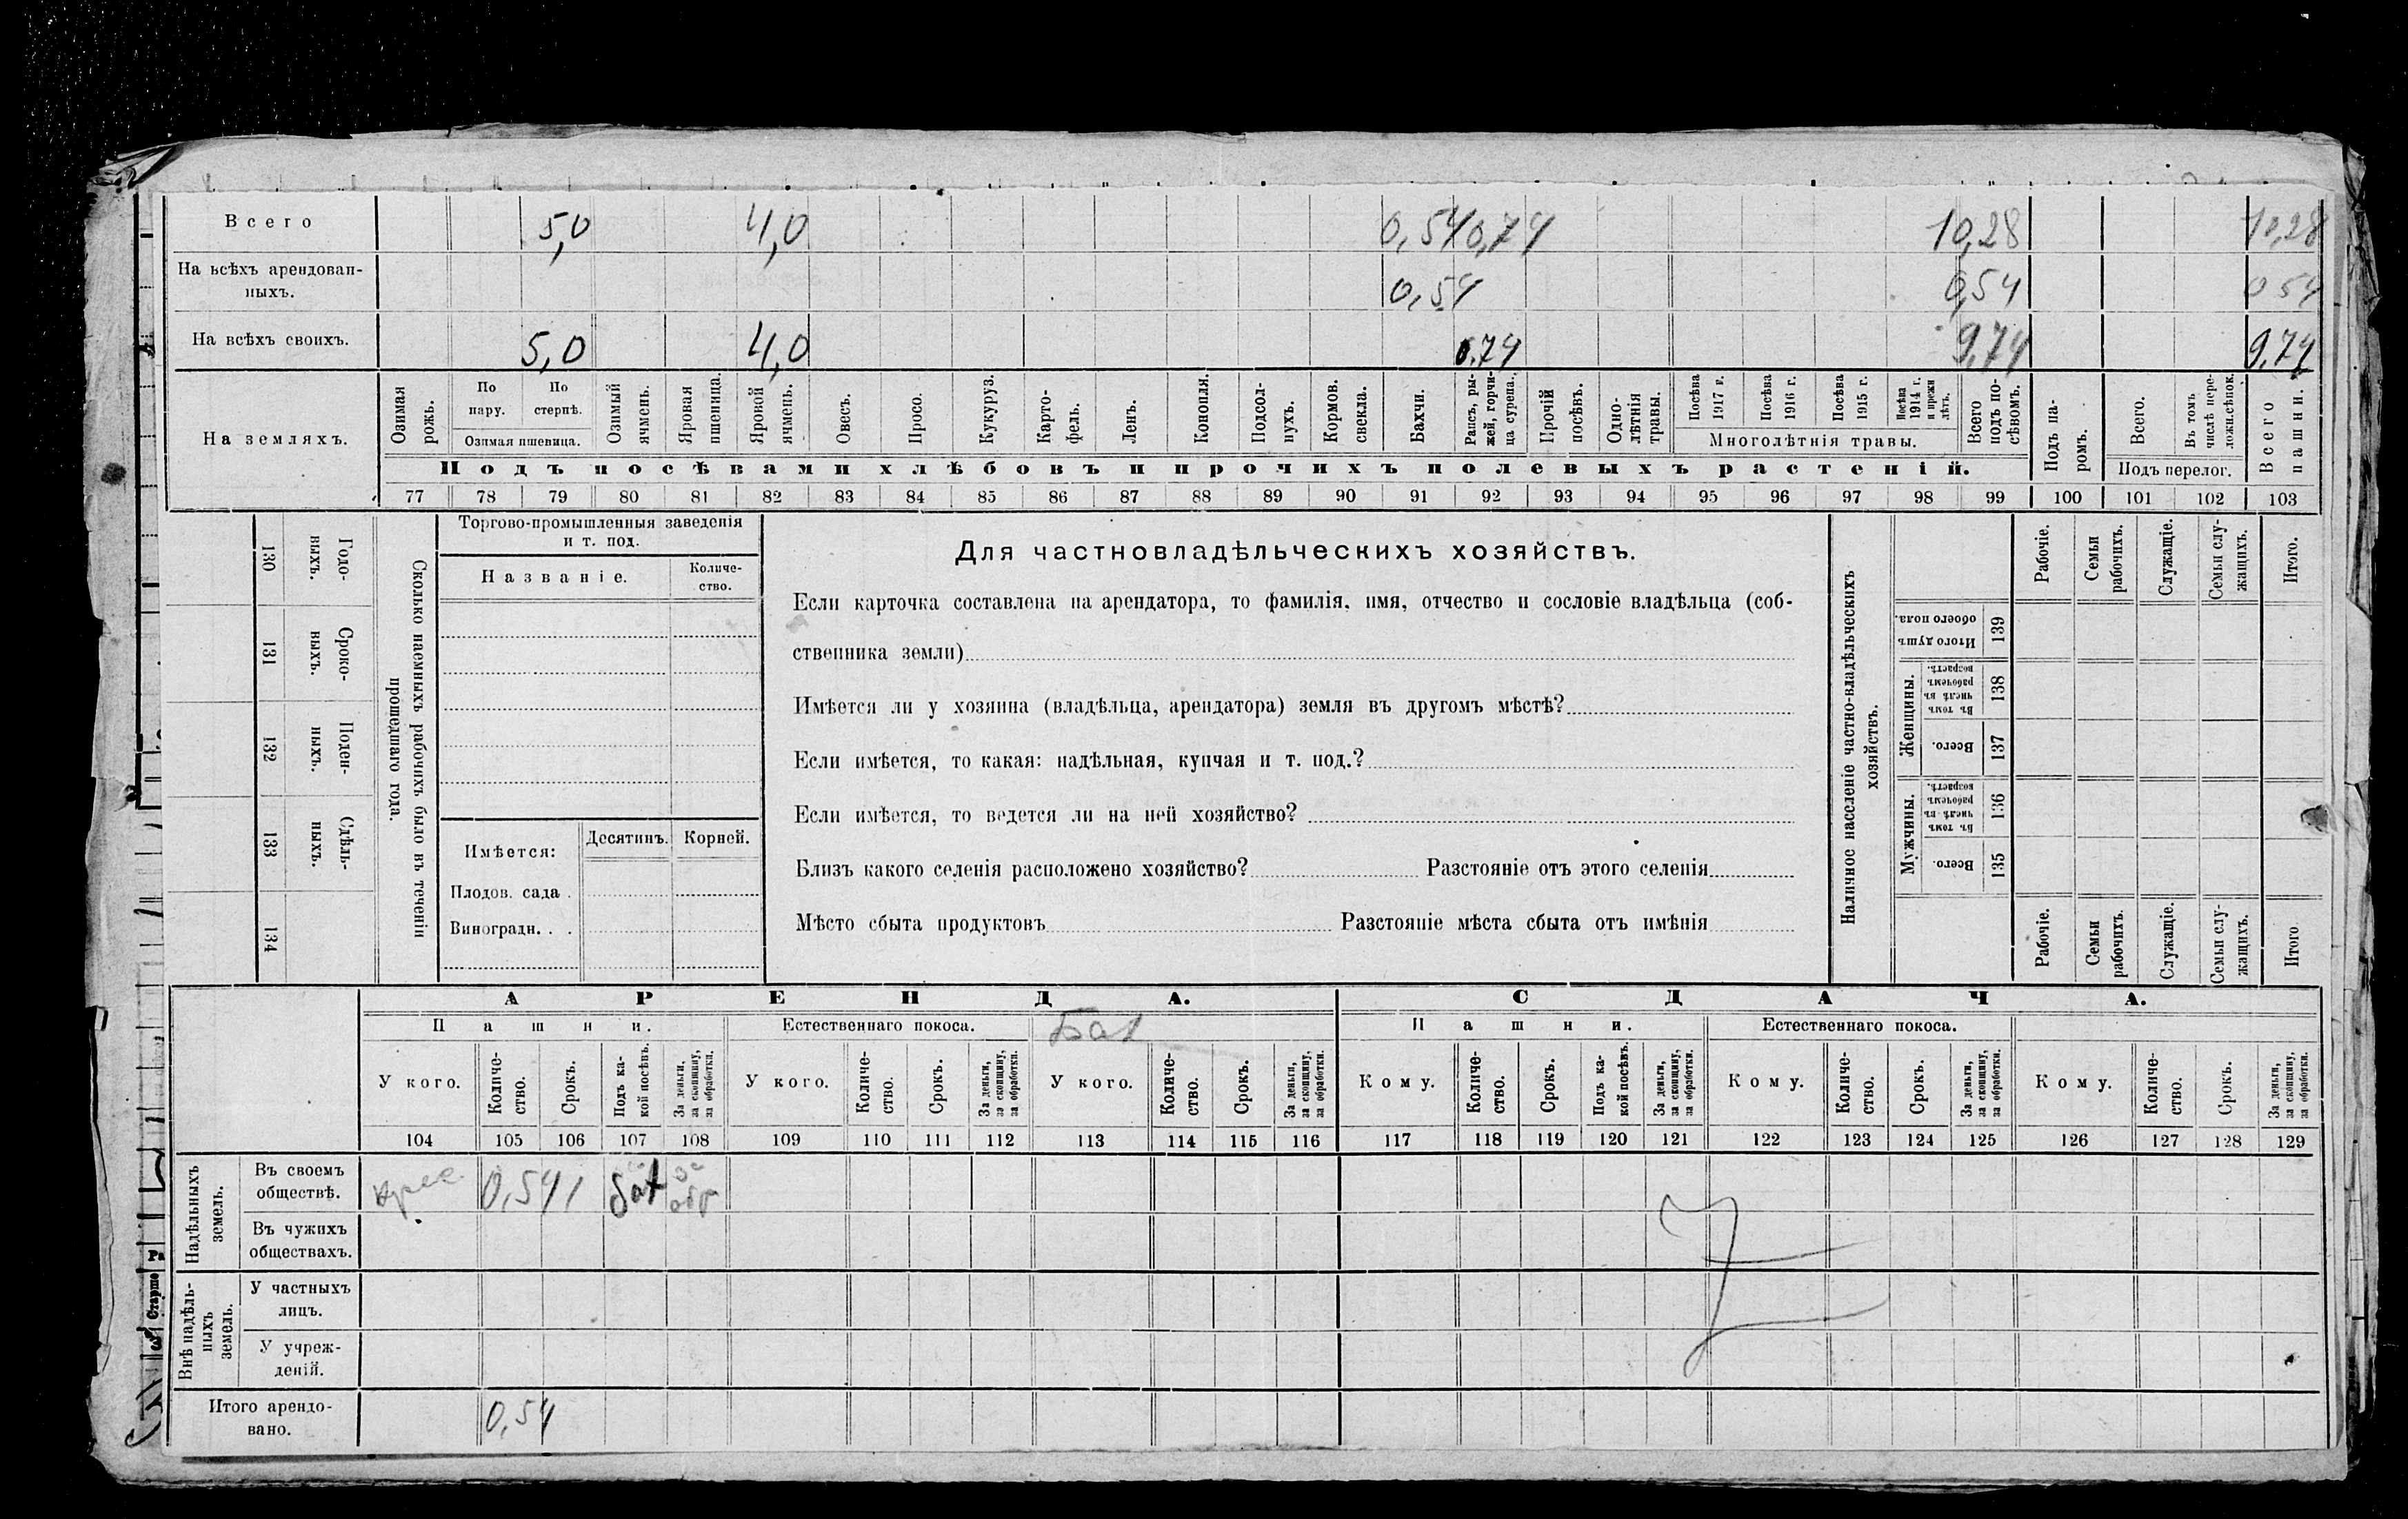 Всего 5,0 4,0 0,54 0,74 10,28 10,28
На всѣхъ арендован-
ныхъ. 0,54 0,54 0 54
На всѣхъ своихъ. 5,0 4,0 0.74 9,74 9,74
На земляхъ.
Озимая рожь.
По пару.
По стернѣ.
Озимая пшеница.
Озимый ячмень.
Яровая пшеница.
Яровой ячмень.
Овесъ.
Просо.
Кукуруз.
Карто-
фель.
Ленъ.
Конопля.
Подсол-
нухъ.
Кормов. свекла.
Бахчи.
Рапсъ, ры-
жей, горчи-
ца сурепа.
Прочій посѣвъ.
Одно-
лѣтнія травы.
Посѣва 1917 г.
Посѣва 1916 г.
Посѣва 1915 г.
Посѣва 1914 г. и прежн лѣтъ.
Многолѣтнія травы.
Всего подъ по-
сѣвомъ.
Подъ па-
ромъ.
Всего.
Въ томъ числѣ пере-
ложн.сѣнок.
Подъ перелог.
Всего пашни.
Подъ посѣвами хлѣбовъ и прочихъ полевыхъ растеній.
77 78 79 80 81 82 83 84 85 86 87 88 89 90 91 92 93 94 95 96 97 98 99 100 101 102 103
Годо-
выхъ.
130
Сроко-
ныхъ.
131
Поден-
ныхъ.
132
Сдѣль-
ныхъ.
133
134
Сколько наемныхъ рабочихъ было въ теченіи
прошедшаго года.
Торгово-промышленныя заведенія
и т. под.
Названіе.
Количе-
ство.
Имѣется: Десятинъ. Корней.
Плодов. сада .
Виноградн. . .
Для частновладѣльческихъ хозяйствъ.
Если карточка составлена на арендатора, то фамилія, имя, отчество и сословіе владѣльца (соб-
ственника земли)
Имѣется ли у хозяина (владѣльца, арендатора) земля въ другомъ мѣстѣ?
Если имѣется, то какая: надѣльная, купчая и т. под.?
Если имѣется, то ведется ли на ней хозяйство?
Близъ какого селенія расположено хозяйство? Разстояніе отъ этого селенія
Мѣсто сбыта продуктовъ Разстояніе мѣста сбыта отъ имѣнія
Наличное населеніе частно-владѣльческихъ
хозяйствъ.
Рабочіе.
Семьи рабочихъ.
Служащіе.
Семьи слу-
жащихъ.
Итого.
Итого душъ обоего пола.
139
Женщины.
Въ томъ числѣ въ рабочемъ возрастѣ.
138
Всего.
137
Мужчины.
Въ томъ числѣ въ рабочемъ возрастѣ.
136
Всего.
135
Рабочіе.
Семьи рабочихъ.
Служащіе.
Семьи слу-
жащихъ.
Итого
АРЕНДА. СДАЧА.
Пашни. Естественнаго покоса. Бах Пашни. Естественнаго покоса.
У кого.
Количе-
ство.
Срокъ.
Подъ ка-
кой посѣвъ.
За деньги, за скопщину, за обработки.
У кого.
Количе-
ство.
Срокъ.
За деньги, за скопщину, за обработки.
У кого.
Количе-
ство.
Срокъ.
За деньги, за скопщину, за обработки.
Кому.
Количе-
ство.
Срокъ.
Подъ ка-
кой посѣвъ.
За деньги, за скопщину, за обработки.
Кому.
Количе-
ство.
Срокъ.
За деньги, за скопщину, за обработки.
Кому.
Количе-
ство.
Срокъ.
За деньги, за скопщину, за обработки.
104 105 106 107 108 109 110 111 112 113 114 115 116 117 118 119 120 121 122 123 124 125 126 127 128 129
Надѣльныхъ земель.
Въ своемъ
обществѣ. 0,54 1 бах за обр
Въ чужихъ
обществахъ.
Внѣ надѣль-
ныхъ земель.
У частныхъ
лицъ.
У учреж-
деній.
Итого арендо-
вано. 0,54
Старше